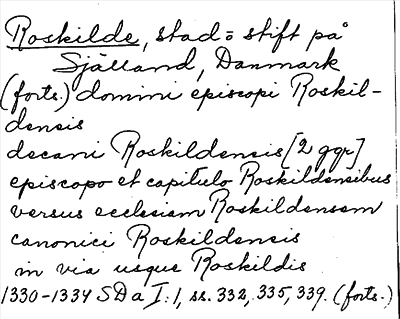 Roskilde, stad o stift på
Själland, Danmark
(forts.) domini episcopi Roskil-
densis
decani Roskildensis [2 ggr]
episcopo et capitulo Roskildensibus
versus ecclesiam Roskildensem
canonici Roskildensis
in via usque Roskildis
1330-1334 SDa I:1, ss. 332, 335, 339. (forts.)